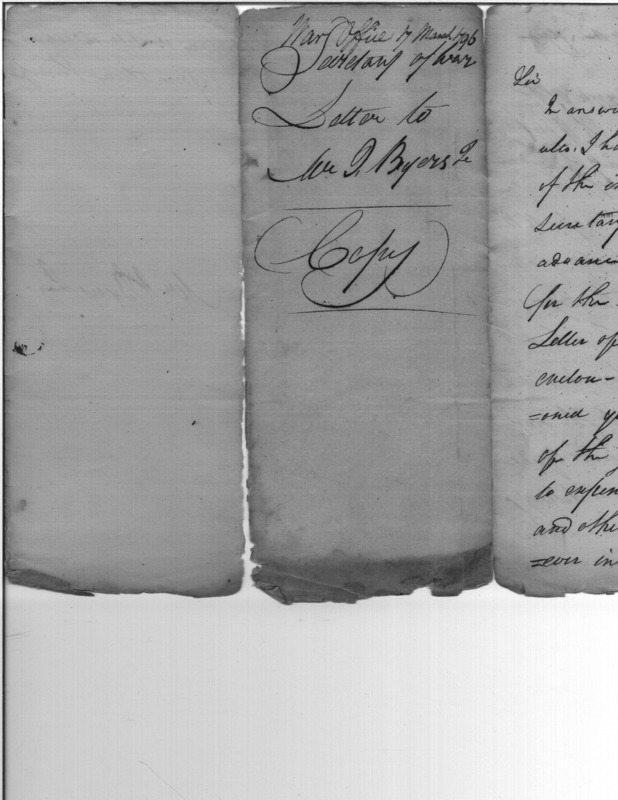 War Office 17 March 1796
Secretary of war
Letter to
Mr J Byers
Copy
Sir
In answ
of the
secretary
advan
for the
Letter of
enclou-
=oned yo
of the
to expen
and othe
=ever in